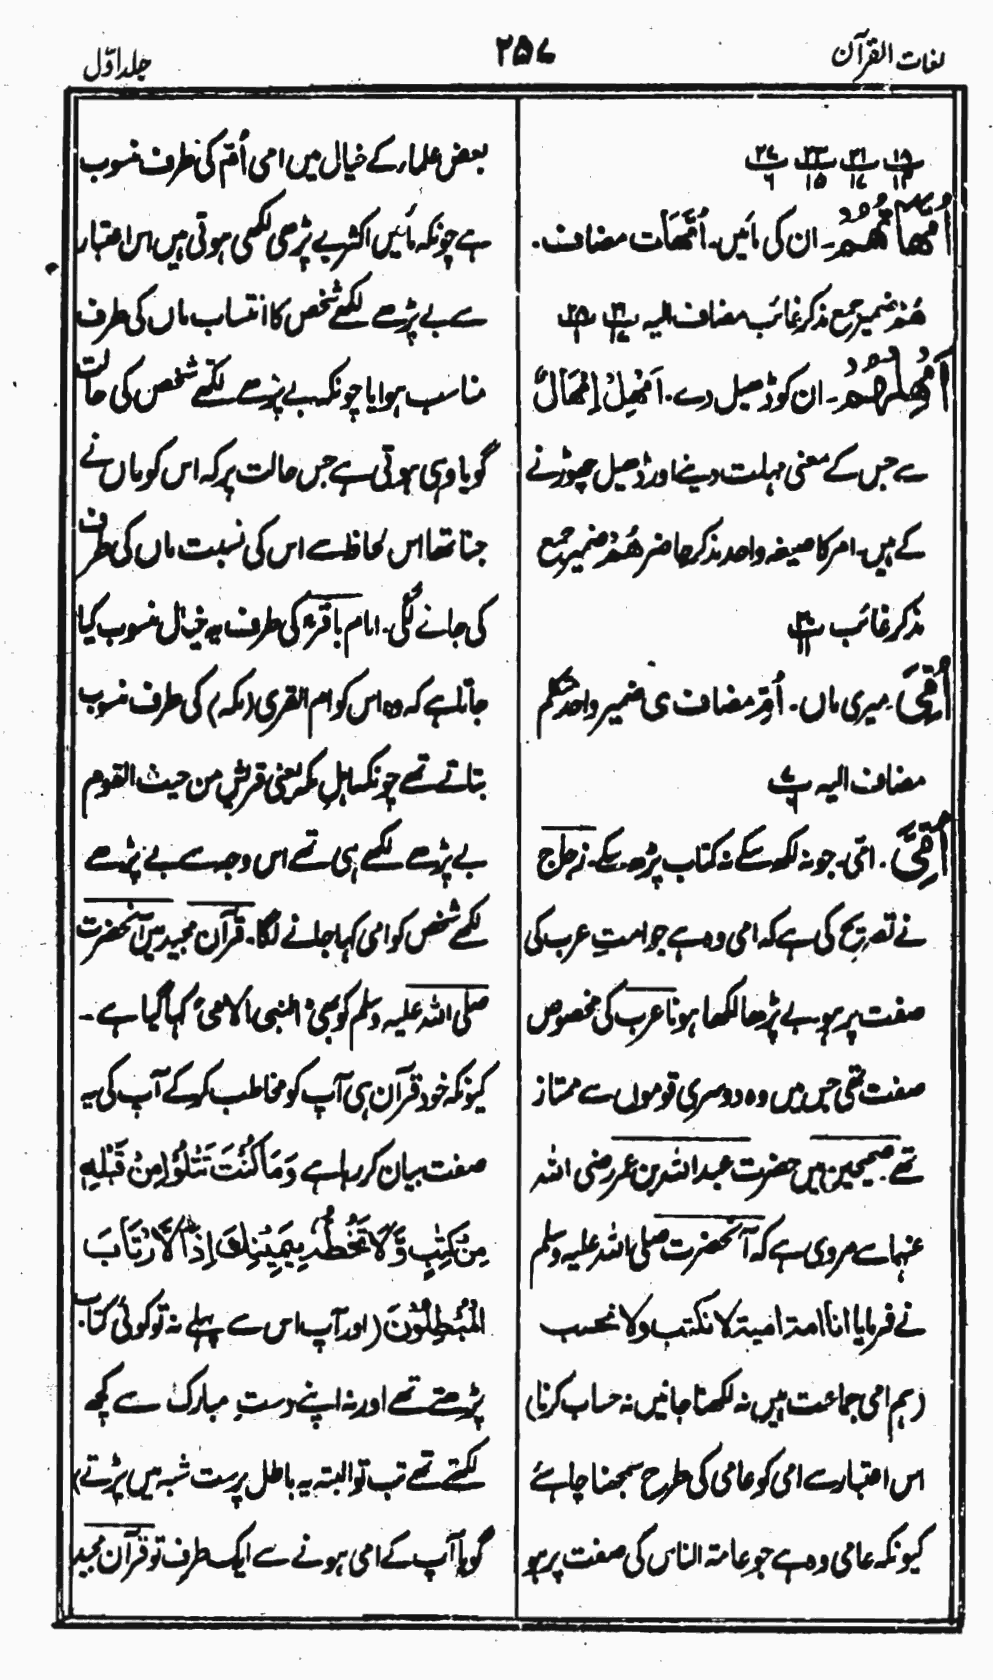 لغات القرآن
۲۵۷
جلد اوّل
۱۸/۱۳ ۲۱/۱۷ ۲۳/۱۵ ۲۷/۶
اُمَّهَاتُهُمْ۔ ان کی مائیں۔ اُمَّهَات مضاف۔
هُمْ ضمیر جمع مذکر غائب مضاف الیہ
اَمْهِلْهُمْ۔ ان کو ڈھیل دے۔ اَمْهِلْ اِمْهَالٌ
سے جس کے معنی مہلت دینے اور ڈھیل چھوڑنے
کے ہیں۔ امر کا صیغہ واحد مذکر حاضر هُمْ ضمیر جمع
مذکر غائب
اُمِّیْ۔ میری ماں۔ اُمّ مضاف ی ضمیر واحد متکلم
مضاف الیہ
اُمِّیَّ۔ امّی۔ جو نہ لکھ سکے نہ کتاب پڑھ سکے۔ زجاج
نے تصریح کی ہے کہ امی وہ ہے جو امتِ عرب کی
صفت پر ہو بے پڑھا لکھا ہونا عرب کی مخصوص
صفت تھی جس میں وہ دوسری قوموں سے ممتاز
تھے صحیحین میں حضرت عبد اللہ بن عمر رضی اللہ
عنہما سے مروی ہے کہ آنحضرت صلی اللہ علیہ وسلم
نے فرمایا انا امة امیة لا نکتب ولا نحسب
(ہم امی جماعت ہیں نہ لکھنا جانیں نہ حساب کرنا)
اس اعتبار سے امی کو عامی کی طرح سمجھنا چاہئے
کیونکہ عامی وہ ہے جو عامۃ الناس کی صفت پر ہو
بعض علماء کے خیال میں امی اُمّ کی طرف منسوب
ہے چونکہ مائیں اکثر بے پڑھی لکھی ہوتی ہیں اس اعتبار
سے بے پڑھے لکھے شخص کا انتساب ماں کی طرف
مناسب ہوا یا چونکہ بے پڑھے لکھے شخص کی حالت
گویا وہی ہوتی ہے جس حالت پر کہ اس کو ماں نے
جنا تھا اس لحاظ سے اس کی نسبت ماں کی طرف
کی جانے لگی۔ امام باقرؒ کی طرف یہ خیال منسوب کیا
جاتا ہے کہ وہ اس کو ام القری (مکہ) کی طرف منسوب
بتاتے تھے چونکہ اہلِ مکہ یعنی قریش من حیث القوم
بے پڑھے لکھے ہی تھے اس وجہ سے بے پڑھے
لکھے شخص کو امی کہا جانے لگا۔ قرآن مجید میں آنحضرت
صلی اللہ علیہ وسلم کو بھی "النبی الامی" کہا گیا ہے۔
کیونکہ خود قرآن ہی آپ کو مخاطب کر کے آپ کی یہ
صفت بیان کر رہا ہے وَمَا کُنْتَ تَتْلُوْا مِنْ قَبْلِهٖ
مِنْ کِتٰبٍ وَّلَا تَخُطُّهٗ بِیَمِیْنِكَ اِذًا لَّارْتَابَ
الْمُبْطِلُوْنَ (اور آپ اس سے پہلے نہ تو کوئی کتاب
پڑھتے تھے اور نہ اپنے دستِ مبارک سے کچھ
لکھتے تھے تب تو البتہ یہ باطل پرست شبہ میں پڑتے)
گویا آپ کے امی ہونے سے ایک طرف تو قرآن مجید